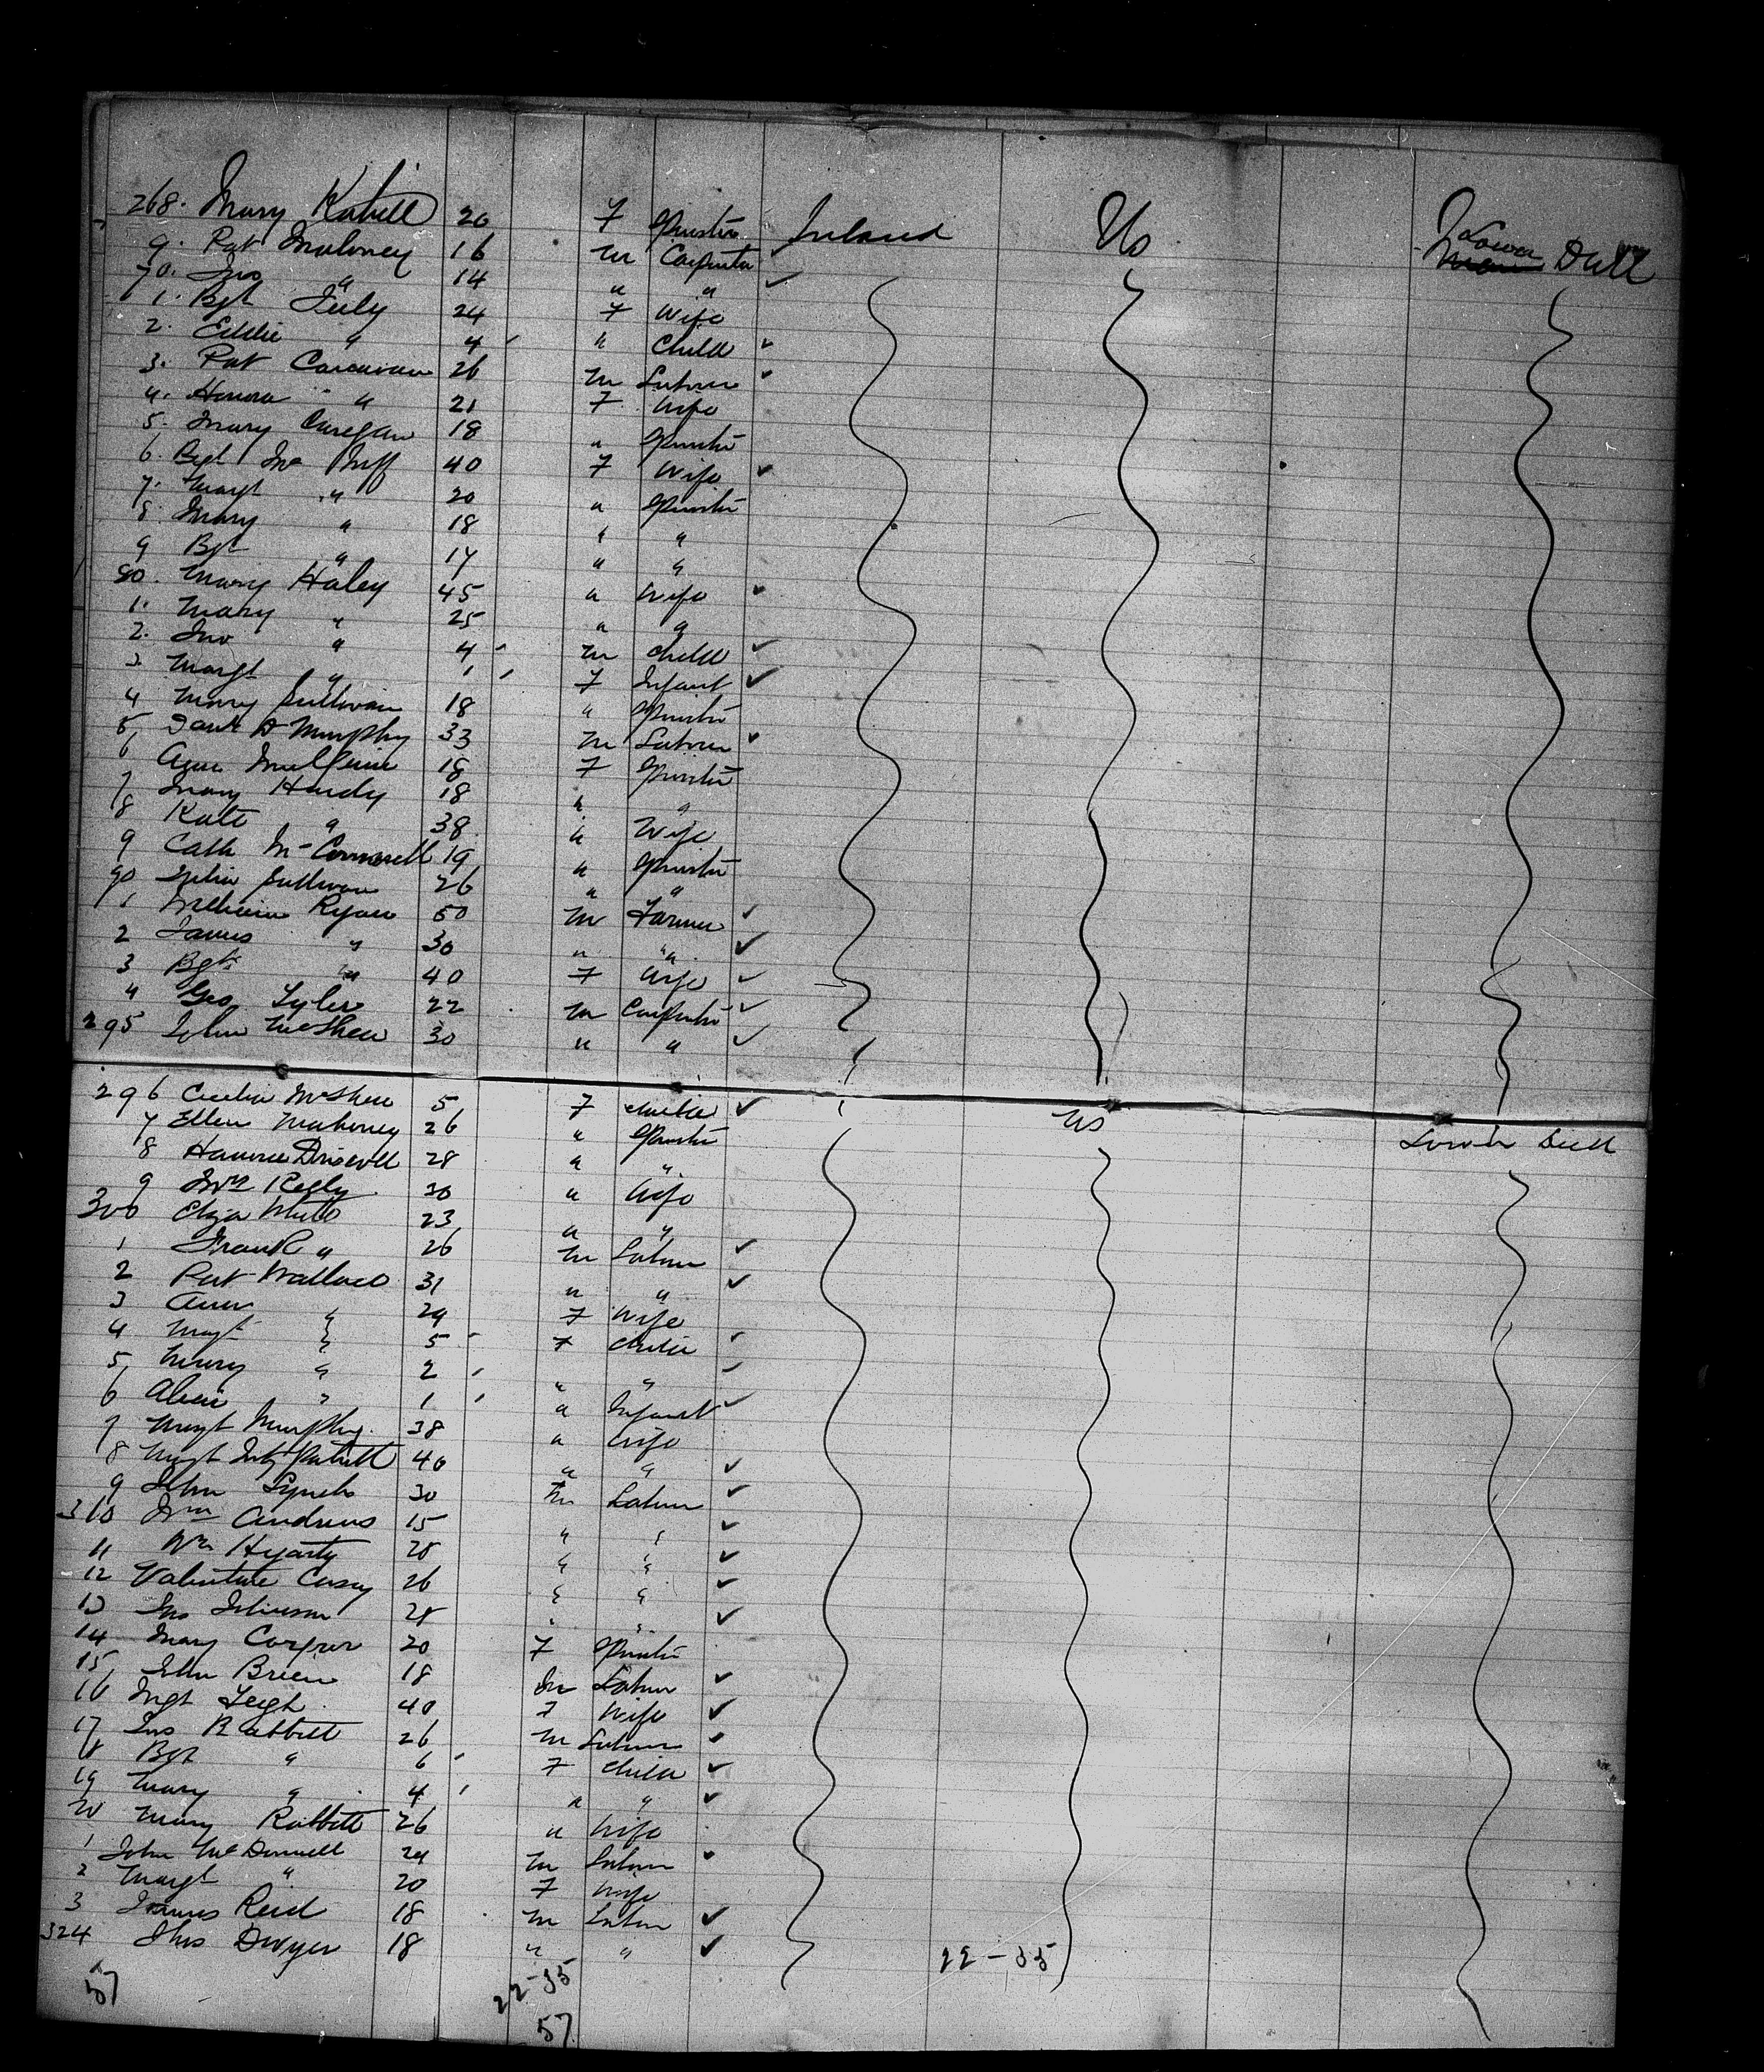 268. Mary Kahill 20 F Spinster Ireland US Lower Deck
9. Pat Maloney 16 m Carpenter
70. Jno " 14 " " ✓
1. Bgt July 24 F Wife
2. Eddie " 4 " Child ✓
3. Pat 26 m Laborer ✓
4. Honora " 21 F Wife
5. Mary 18 " Spinster
6. Bgt Mc 40 F Wife ✓
7. Margt " 20 " Spinster
8. Mary " 18 " "
9 Bgt " 17 " "
80. Mary Haley 45 " Wife ✓
1. Mary " 25 " "
2. Jno " 4 m Child ✓
3 Margt " 1 F Infant ✓
4 Mary Sullivan 18 " Spinster
5 Murphy 33 m Laborer ✓
6 18 F Spinster
7 Mary Hardy 18 " "
8 Kate " 38 " Wife
9 Cath McConnell 19 " Spinster
90 Julia Sullivan 26 " "
1 William Ryan 50 m Farmer ✓
2 James " 30 " " ✓
3 Bgt " 40 F Wife ✓
4 Geo Tyler 22 m Carpenter ✓
295 John McShea 30 " " ✓
296 Cecelia McShea 5 F Child ✓ US Lower Deck
7 Ellen Mahoney 26 " Spinster
8 Driscoll 28 " "
9 30 " Wife
300 Eliza White 23 " "
1 Frank " 26 m Labour ✓
2 Pat Wallace 31 " " ✓
3 Ann " 29 F Wife
4 Margt " 5 F Child ✓
5 Mary " 2 " " ✓
6 " 1 " Infant ✓
7 Margt Murphy 38 " Wife
8 Margt Fitzpatrick 40 " " ✓
9 John Lynch 30 m Labour ✓
310 Wm Andrews 15 " " ✓
11 Wm Hyarty 28 " " ✓
12 Valentine Casey 26 " " ✓
13 Jno Johnson 28 " " ✓
14 Mary 20 F Spinster
15 John Brien 18 m Labour ✓
16 Mgt Leigh 40 F Wife ✓
17 Jno Rabbitt 26 m Labour ✓
8 Bgt " 6 F Child ✓
19 Mary " 4 " " ✓
20 Mary Rabbitt 26 " Wife
1 John McDonnell 24 m Labour ✓
2 Margt " 20 F Wife
3 James Reid 18 m Labour ✓
324 Thos Dwyer 18 " " ✓
22-35
57 22-35
57